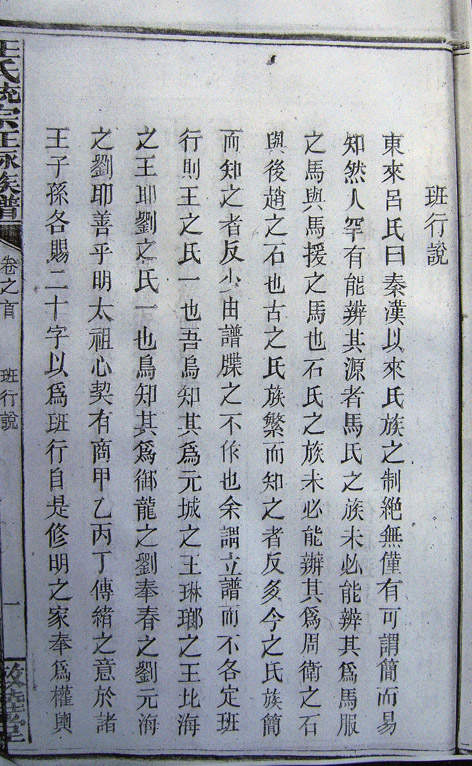 班行說
東來呂氏曰秦漢以來氏族之制絶無僅有可謂簡而易
知然人罕有能辨其源者馬氏之族未必能辨其爲馬服
之馬與馬援之馬也石氏之族未必能辨其爲周衛之石
與後趙之石也古之氏族繁而知之者反多今之氏族簡
而知之者反少由譜牒之不作也余謂立譜而不各定班
行則王之氏一也吾烏知其爲元城之王琳瑯之王比海
之王耶劉之氏一也烏知其爲御龍之劉奉春之劉元海
之劉耶善乎明太祖心契有商甲乙丙丁傳緒之意於諸
王子孫各賜二十字以爲班行自是修明之家奉爲權輿
氏統宗正脉族譜
卷之首
班行說
一